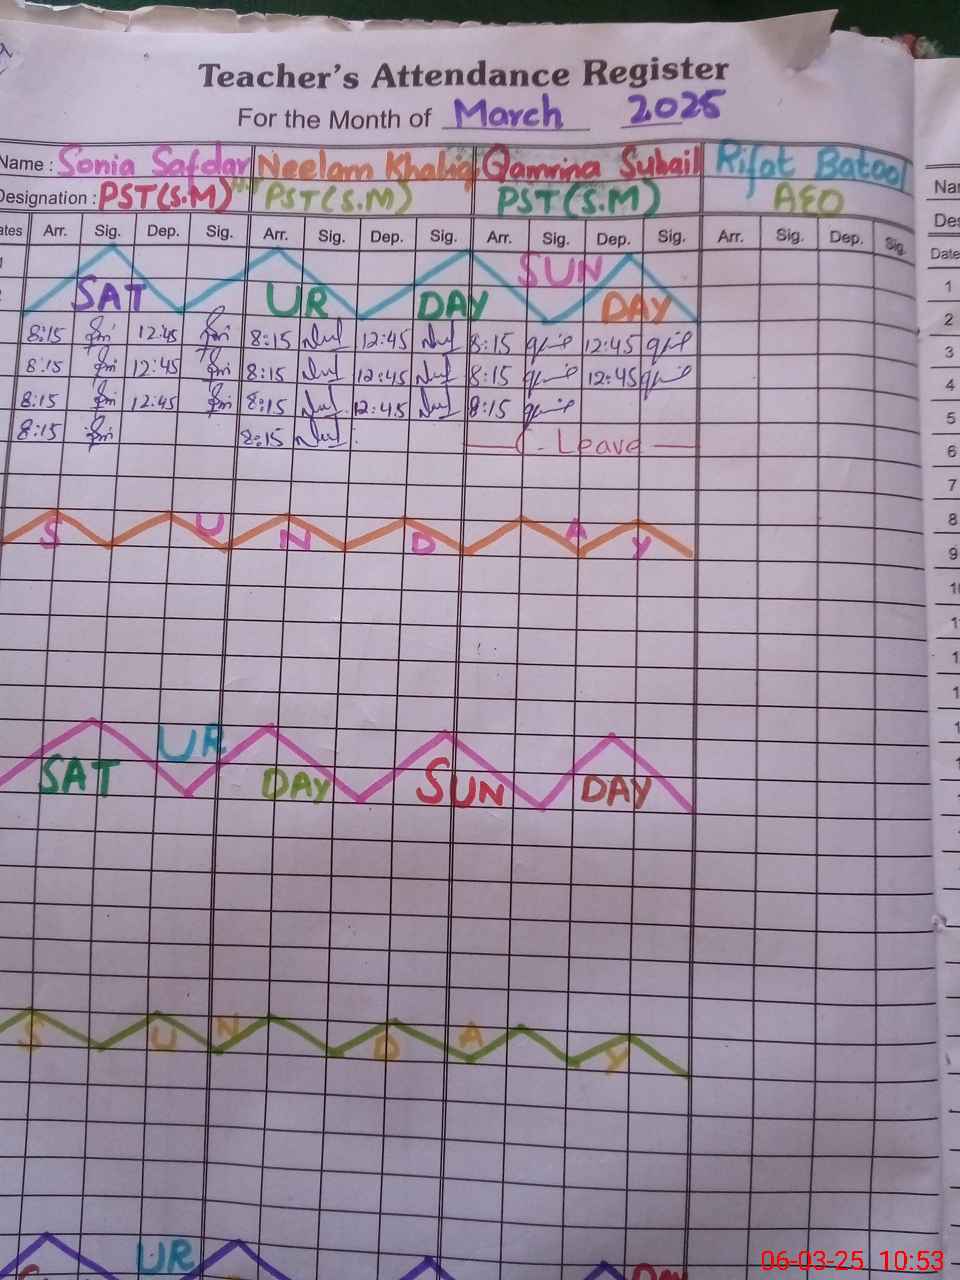 Teacher's Attendance Register
For the Month of March 2025
Name : Sonia Safdar Neelam Khaliq Qamrina Suhail Rifat Batool
Designation : PST(S.M) PST(S.M) PST(S.M) AEO
ates Arr. Sig. Dep. Sig. Arr. Sig. Dep. Sig. Arr. Sig. Dep. Sig. Arr. Sig. Dep. Sig.
SUN
SAT UR DAY DAY
8:15 12:45 8:15 12:45 8:15 12:45
8:15 12:45 8:15 12:45 8:15 12:45
8:15 12:45 8:15 12:45 8:15
8:15 8:15 Leave
S U N D A Y
UR
SAT DAY SUN DAY
S U N D A Y
UR
Na
De
Date
1
2
3
4
5
6
7
8
9
06-03-25 10:53